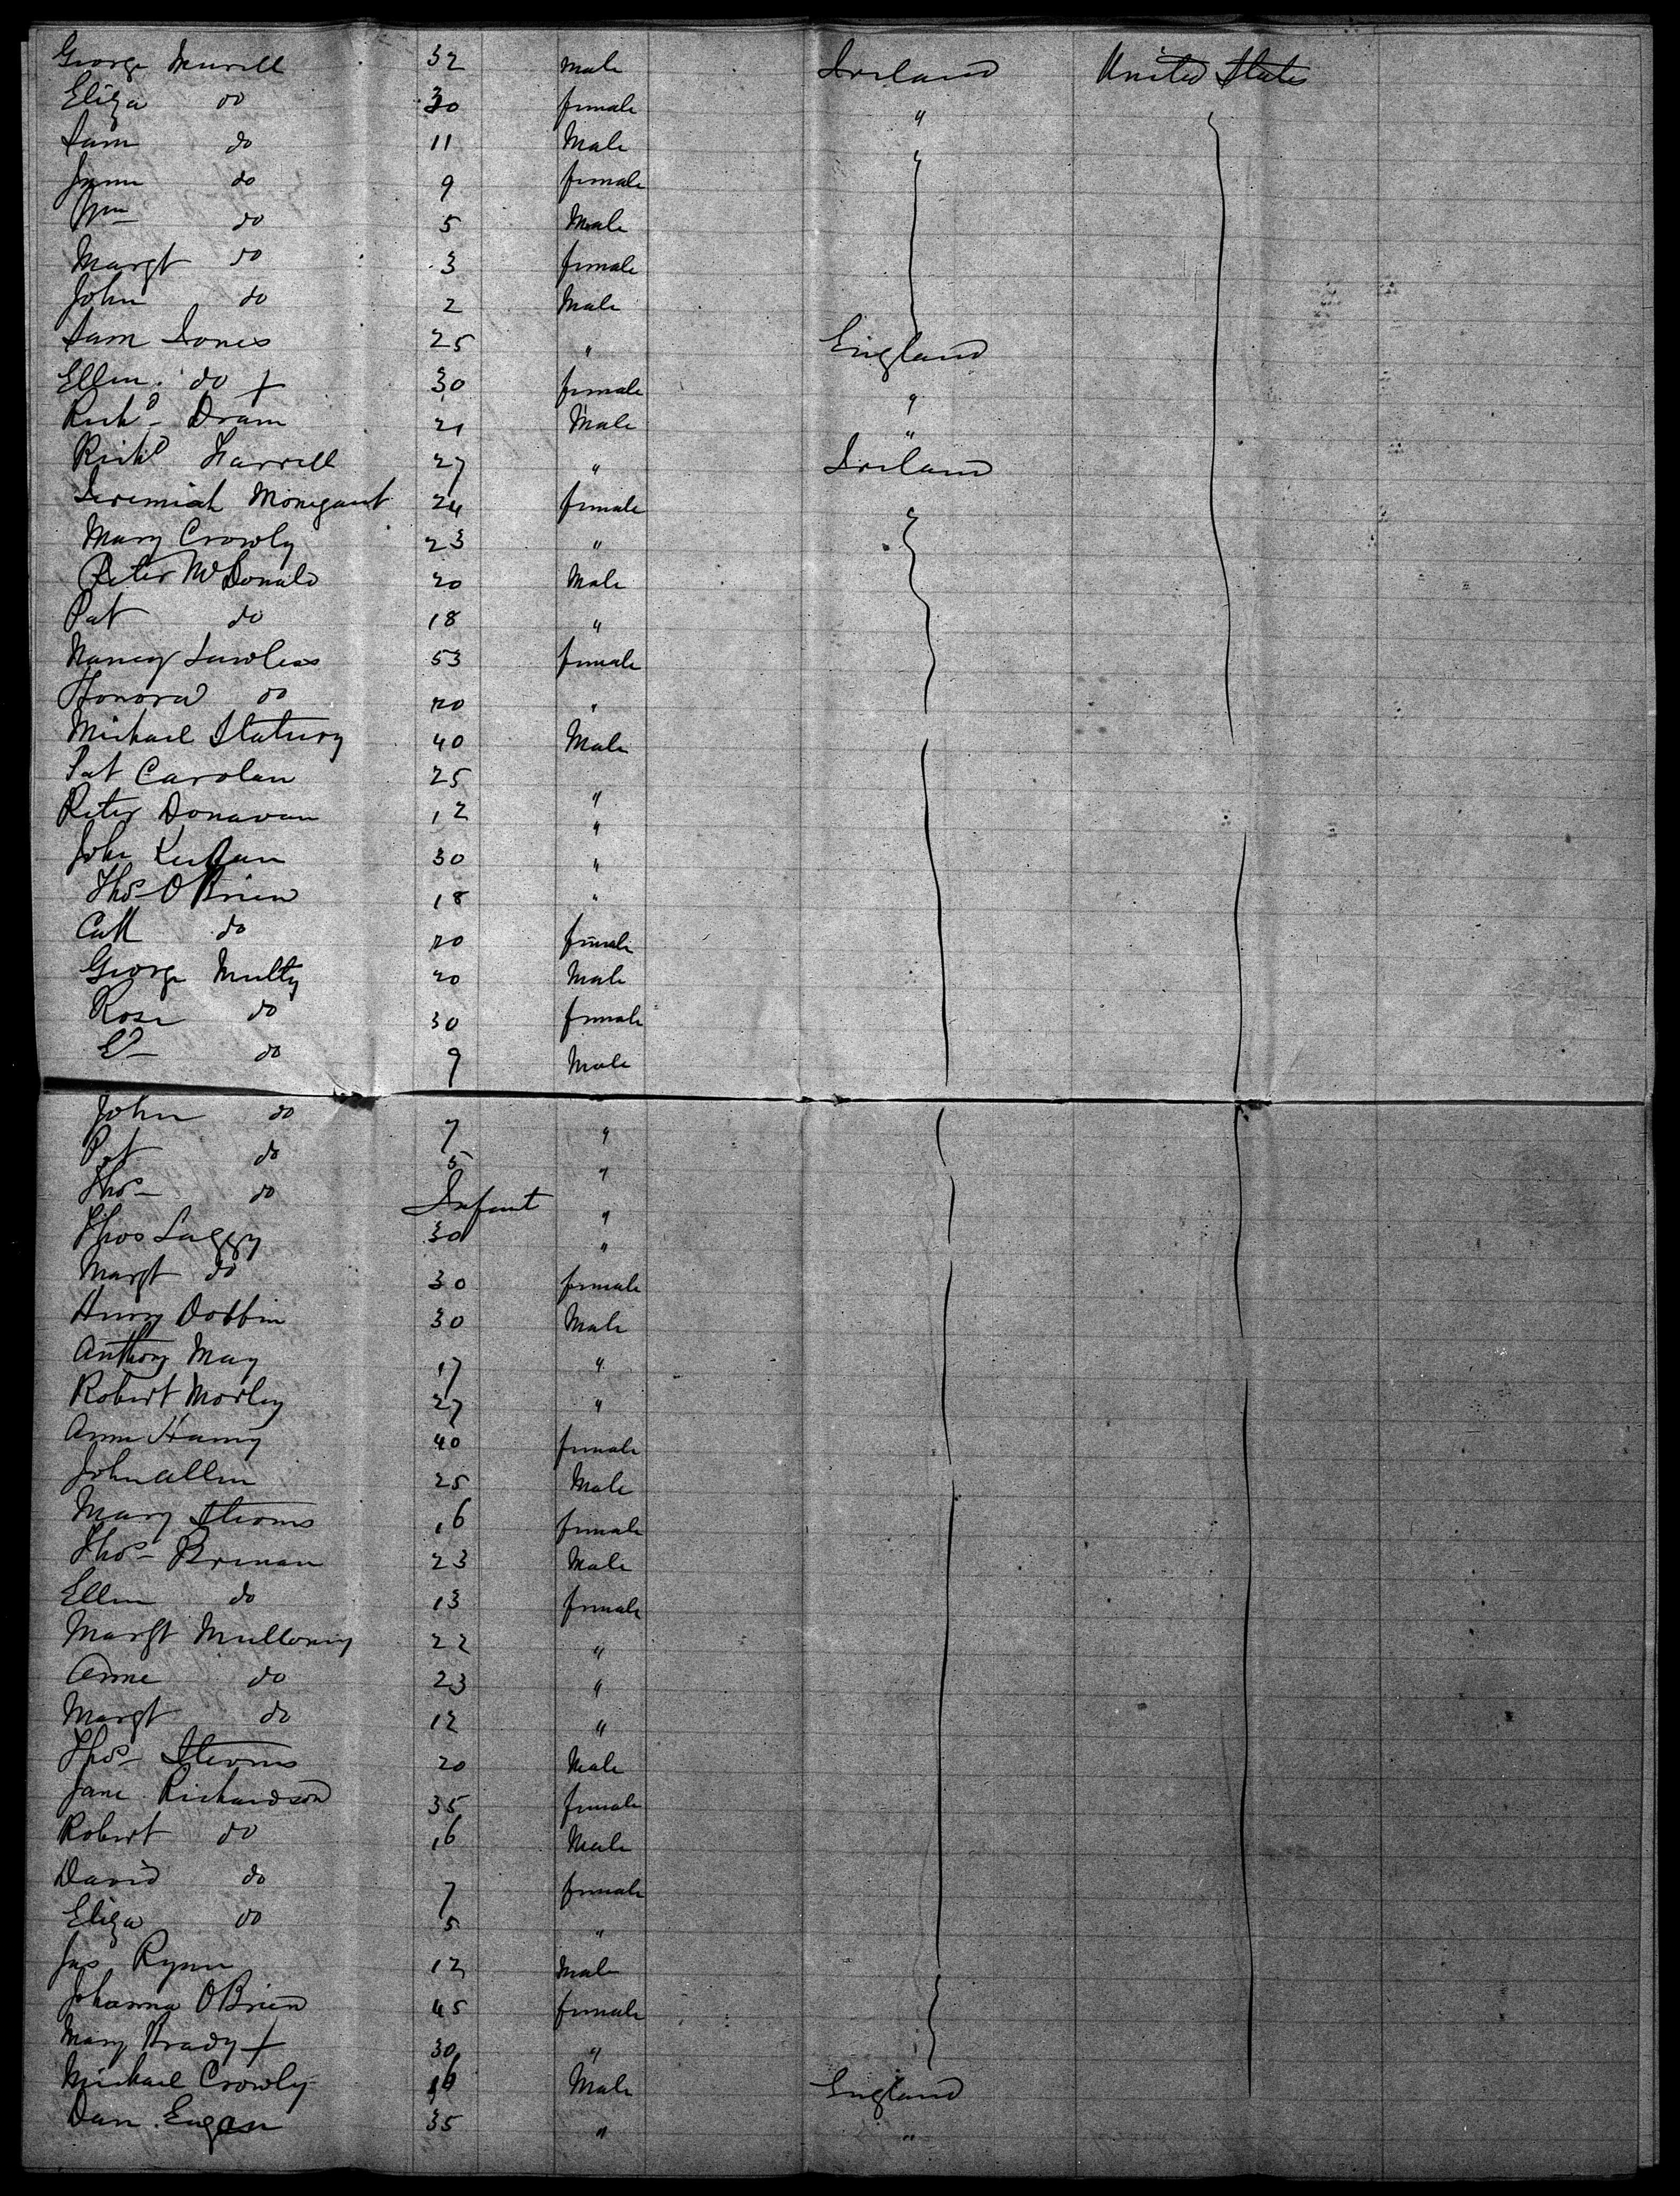 George Murill 32 male Ireland United States
Eliza do 30 female "
Sam do 11 Male
Jynn do 9 female
Wm do 5 Male
Margt do 3 female
John do 2 Male
Sam Jones 25 " England
Ellen do + 30 female "
Richd Dram 21 Male "
Richd Farrell 27 " Ireland
Jeremiah Monegant 24 female
Mary Crowly 23 "
Peter McDonald 20 Male
Pat do 18 "
Nancy Lawless 53 female
Honora do 20 "
Michael Slatury 40 Male
Pat Carolan 25 "
Peter Donavan 12 "
John 30 "
Thos O Brien 18 "
Cath do 20 female
George Multy 20 Male
Rose do 30 female
Ed do 9 Male
John do 7 "
Pat do 5 "
Thos do Infant "
Thos Laggy 30 "
Margt do 30 female
Henry Dobbin 30 Male
Anthony May 17 "
Robert Morley 27 "
Ann Haney 40 female
John Allen 25 Male
Mary Sterns 16 female
Thos Brenan 23 Male
Ellen do 13 female
Margt Mullowny 22 "
Anne do 23 "
Margt do 12 "
Thos Sterns 20 Male
Jane Richardson 35 female
Robert do 16 Male
David do 7 female
Eliza do 5 "
Jas Rynn 12 male
Johanna O Brien 45 female
Mary Brady + 30 "
Michael Crowly 16 Male England
Dan Eagan 35 " "